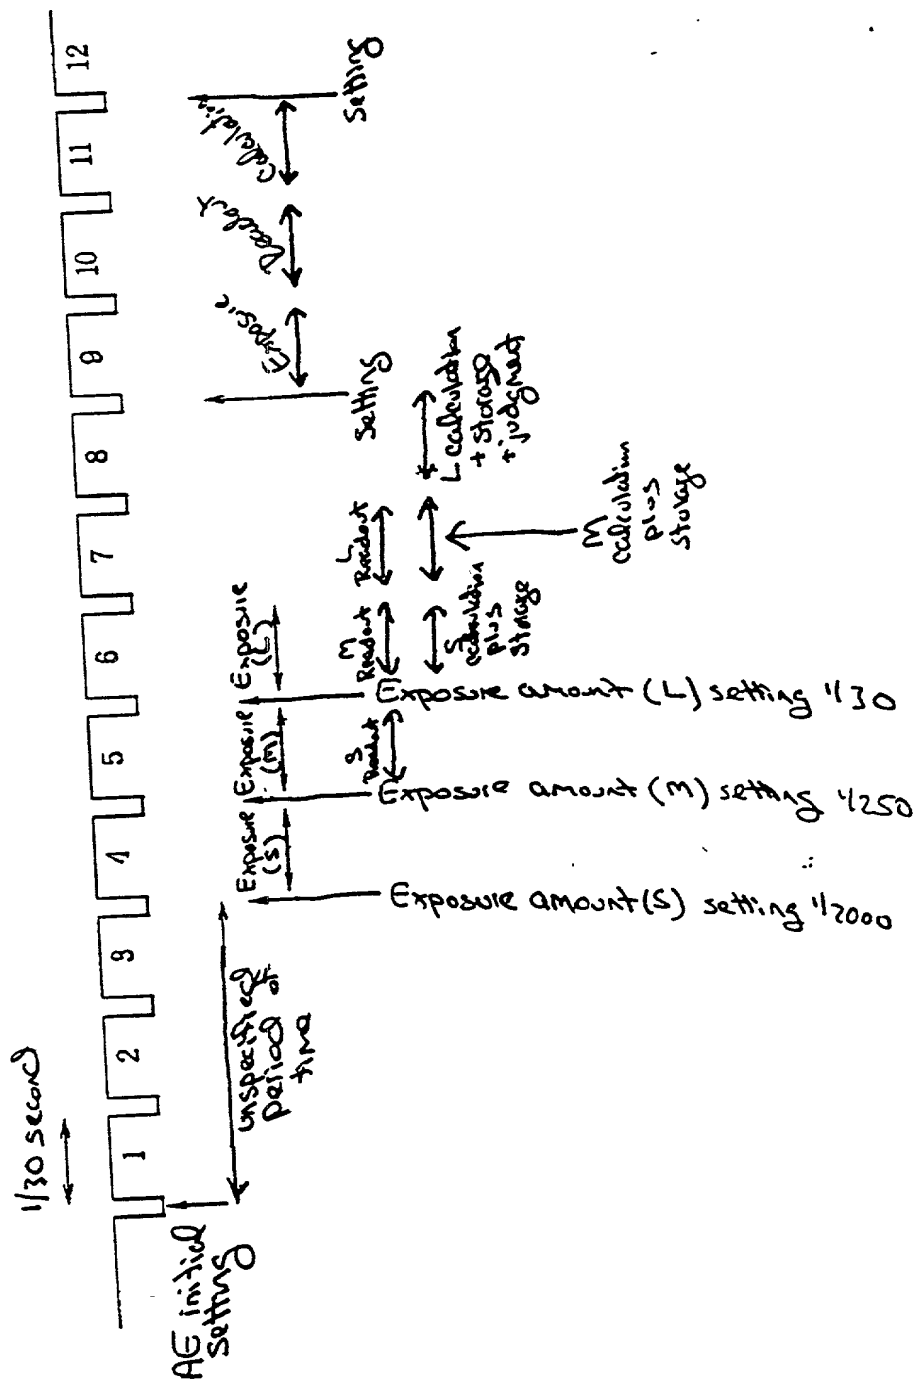 1/30 second
1 2 3 4 5 6 7 8 9 10 11 12
AE initial
setting
unspecified
period of
time
Exposure
(S)
Exposure
(M)
Exposure
(L)
Exposure amount (S) setting 1/2000
Exposure amount (M) setting 1/250
Exposure amount (L) setting 1/30
S
Readout
M
Readout
L
Readout
S
calculation
plus
storage
M
calculation
plus
storage
L calculation
+ storage
+ judgment
Setting
Calculation
Setting